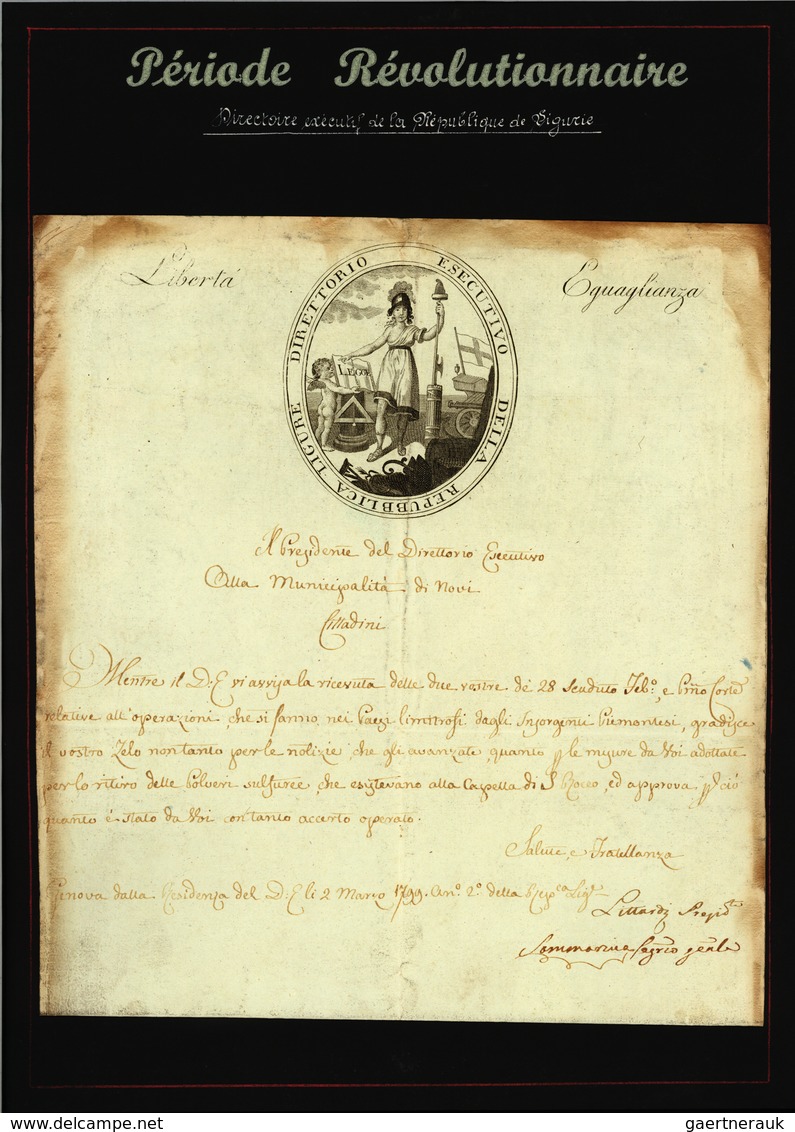 Période Révolutionnaire
Directoire exécutif de la République de Ligurie
Libertá
Eguaglianza
DIRETTORIO ESECUTIVO DELLA REPUBBLICA LIGURE
LEGGI
Il Presidente del Direttorio Esecutivo
Alla Municipalità di Novi
Cittadini
Mentre il D. E. vi avvisa la ricevuta delle due vostre de 28 scaduto Feb.º, e Pmo Corte
relative all'operazioni, che si fanno, nei Paesi limitrofi dagli Insorgenti Piemontesi, gradisce
il vostro Zelo non tanto per le notizie, che gli avanzate, quanto p le misure da Voi adottate
per lo ritiro delle Polveri sulfuree, che esistevano alla Capella di S. Rocco, ed approva p ciò
quanto é stato da Voi con tanto accerto operato.
Salute, e Fratellanza
Genova dalla Residenza del D. E. li 2 Marzo 1799. An.º 2.º della Rep.ca Lig.e
Littardi Presid.te
Sommariva, Segrio genle
delcampe.net
gaertnerauk